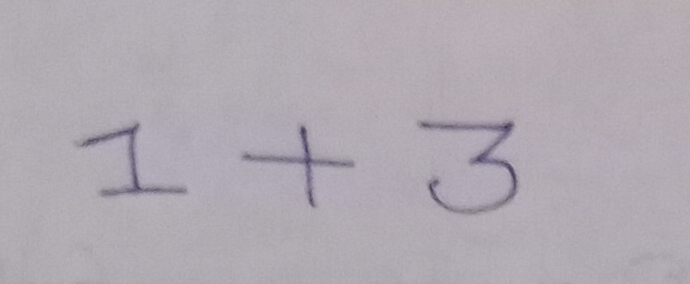 1 + 3